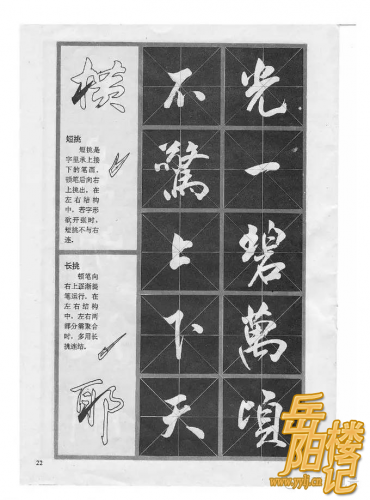 横
短挑
短挑是
字呈承上接
下的笔画,
顿笔后向右
上挑出,在
左右结构
中,若字形
欲开张时,
短挑不与右
连。
长挑
顿笔向
右上逐渐提
笔运行,在
左右结构
中,左右两
部分需聚合
时,多用长
挑连结。
耶
不驚上下天
光一碧萬頃
22
岳阳楼记